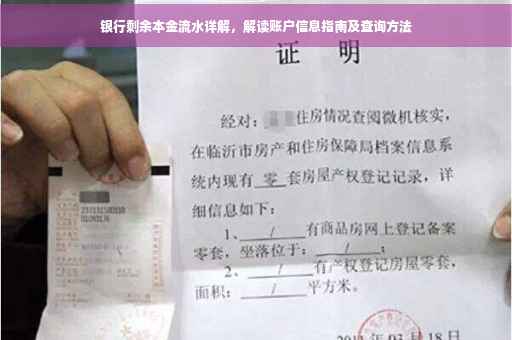 银行剩余本金流水详解，解读账户信息指南及查询方法
证 明
经对：住房情况查阅微机核实，
在临沂市房产和住房保障局档案信息系
统内现有 零 套房屋产权登记记录，详
细信息如下：
1、 / 有商品房网上登记备案
零套，坐落位于： / ；
2、 / 有产权登记房屋零套，
面积： / 平方米。
03 月 18 日